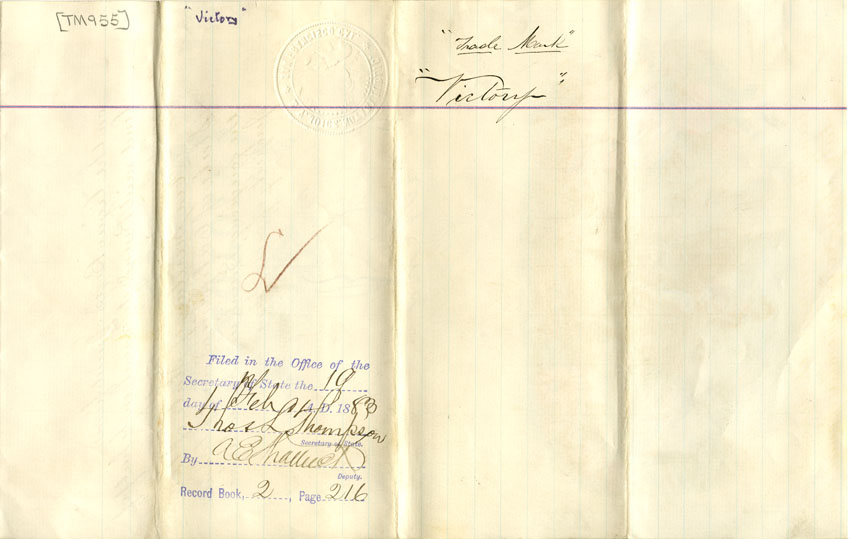 [TM955]
"Victory"
"Trade Mark"
"Victory"
Filed in the Office of the
Secretary of State the 19
day of Feby A.D. 1883
Thos L Thompson
Secretary of State.
By A E Shattuck
Deputy.
Record Book, 2, Page 216